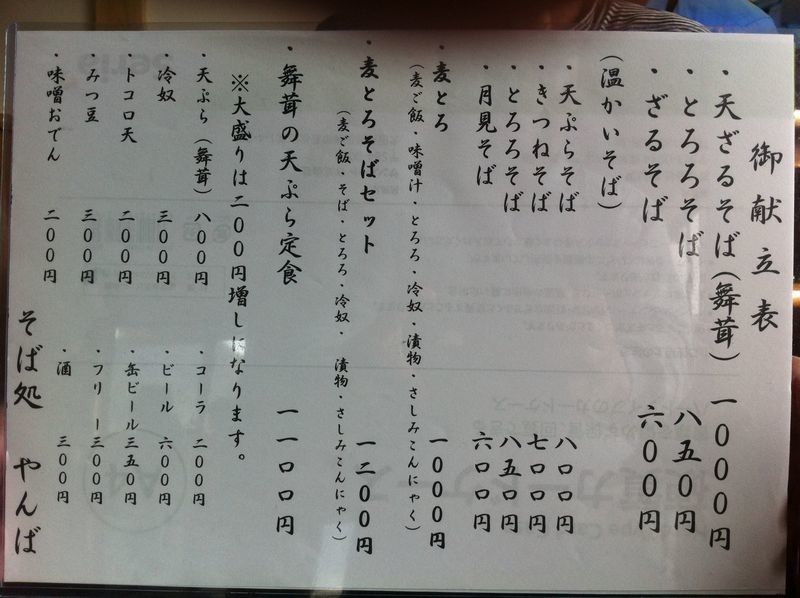 御献立表
・天ざるそば(舞茸) 一〇〇〇円
・とろろそば 八五〇円
・ざるそば 六〇〇円
(温かいそば)
・天ぷらそば 八〇〇円
・きつねそば 七〇〇円
・とろろそば 八五〇円
・月見そば 六〇〇円
・麦とろ 一〇〇〇円
(麦ご飯・味噌汁・とろろ・冷奴・漬物・さしみこんにゃく)
・麦とろそばセット 一二〇〇円
(麦ご飯・そば・とろろ・冷奴・漬物・さしみこんにゃく)
・舞茸の天ぷら定食 一一〇〇円
※大盛りは二〇〇円増しになります。
・天ぷら(舞茸) 八〇〇円
・冷奴 三〇〇円
・トコロ天 二〇〇円
・みつ豆 三〇〇円
・味噌おでん 二〇〇円
・コーラ 二〇〇円
・ビール 六〇〇円
・缶ビール 三五〇円
・フリー 三〇〇円
・酒 三〇〇円
そば処 やんば